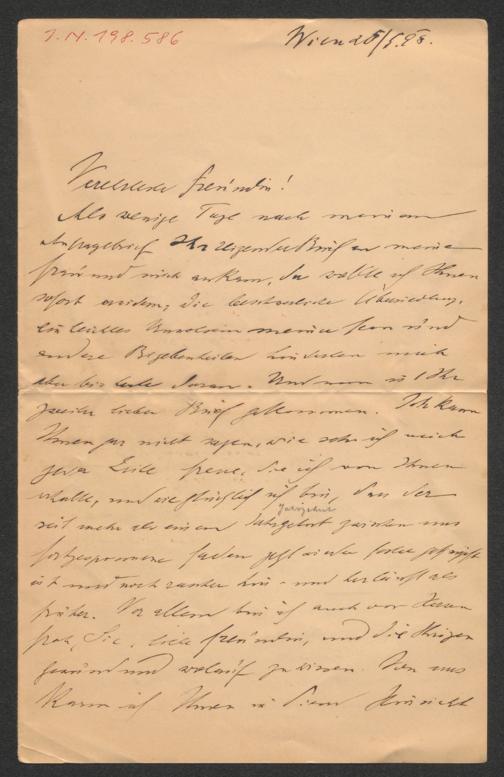 I.N. 198.586
Wien 25/5. 98.
Verehrteste Freundin!
Als wenige Tage nach meinem
Anfragebrief Ihr reizender Brief an meine
Frau und mich ankam, da wollte ich Ihnen
sofort die Übersiedlung,
ein leichtes meiner Frau und
andere Begebenheiten hinderten mich
aber bis heute daran. Und nun ist Ihr
zweiter lieber Brief gekommen. Ich kann
Ihnen gar nicht sagen, wie sehr ich mich
jeder Zeile freue, die ich von Ihnen
erhalte, und wie glücklich ich bin, dass der
Jahrzehnt
seit mehr als einem Jahrzehnt zwischen uns
Faden jetzt wieder fester geknüpft
ist und noch als
früher. Vor allem bin ich auch von Herzen
froh, Sie, liebe Freundin, und die Ihrigen
gesund und wolauf zu wissen. Von uns
kann ich Ihnen in dieser Hinsicht